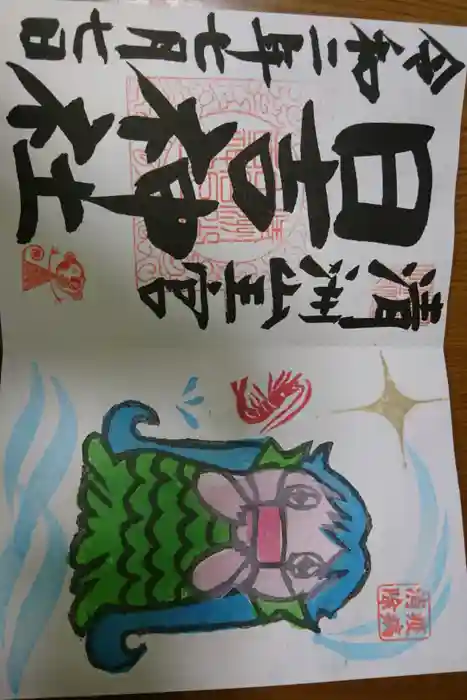 清洲山王宮
日吉神社
令和二年七月七日
疫病
消除